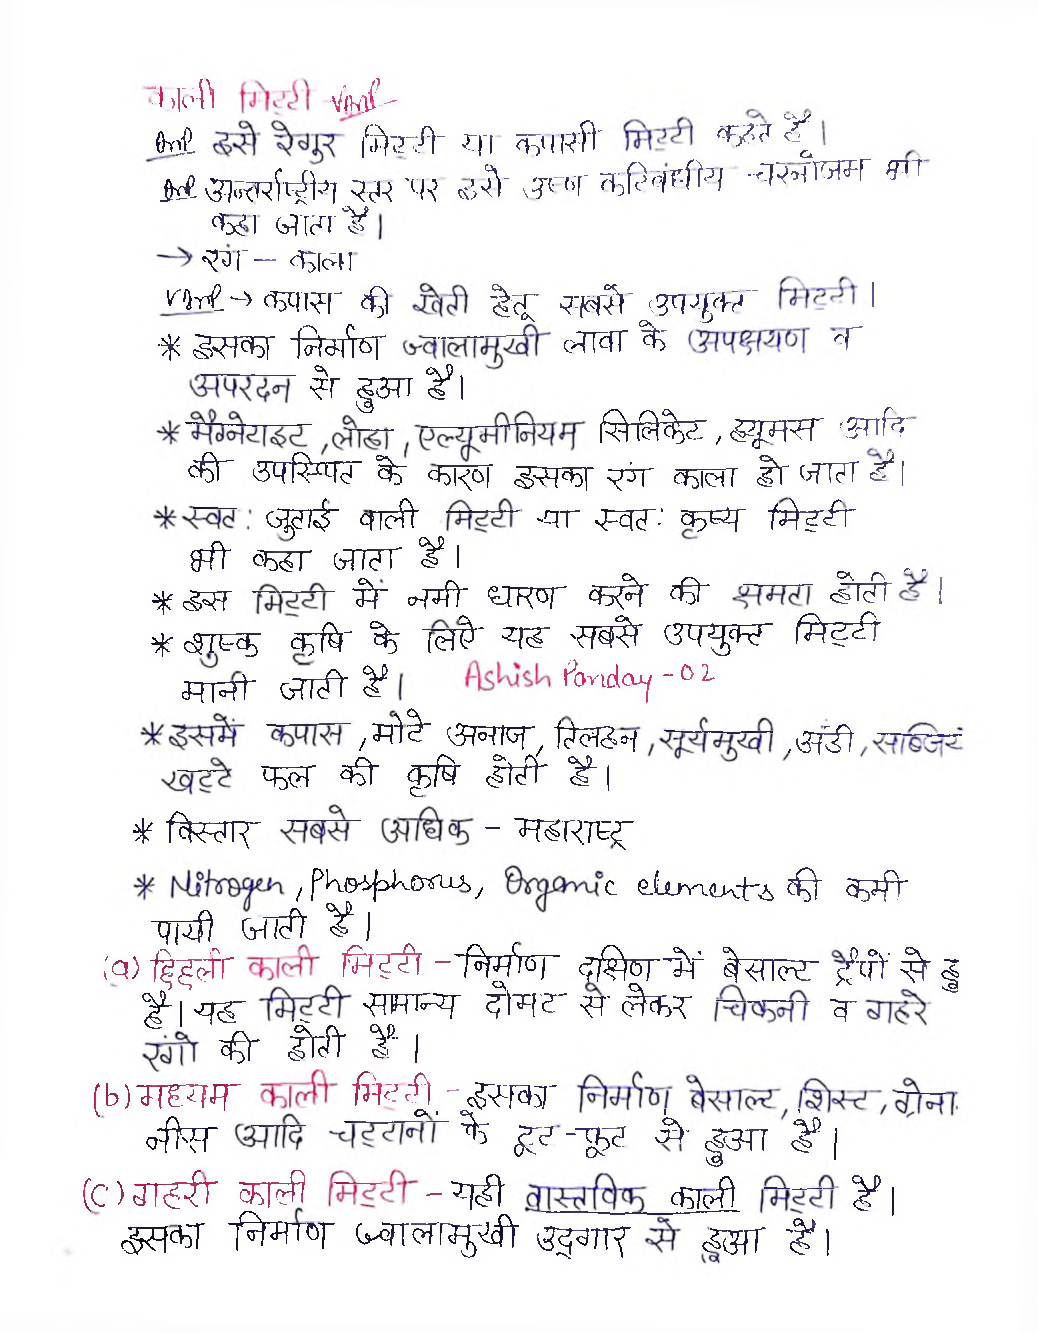 काली मिट्टी VImp
Imp इसे रेगुर मिट्टी या कपासी मिट्टी कहते है।
Imp अन्तर्राष्ट्रीय स्तर पर इसे उष्ण कटिबंधीय चरनोजम भी
कहा जाता है।
→ रंग – काला
VImp → कपास की खेती हेतू सबसे उपयुक्त मिट्टी।
* इसका निर्माण ज्वालामुखी लावा के अपक्षयण व
अपरदन से हुआ है।
* मैग्नेटाइट, लोहा, एल्यूमीनियम सिलिकेट, ह्यूमस आदि
की उपस्थित के कारण इसका रंग काला हो जाता है।
* स्वत: जुताई वाली मिट्टी या स्वत: कृष्य मिट्टी
भी कहा जाता है।
* इस मिट्टी में नमी धारण करने की क्षमता होती है।
* शुष्क कृषि के लिऐ यह सबसे उपयुक्त मिट्टी
मानी जाती है। Ashish Panday - 02
* इसमें कपास, मोटे अनाज, तिलहन, सूर्यमुखी, अंडी, सब्जियं
खट्टे फल की कृषि होती है।
* विस्तार सबसे अधिक – महाराष्ट्र
* Nitrogen, Phosphorus, Organic elements की कमी
पायी जाती है।
(a) छिछली काली मिट्टी – निर्माण दक्षिण में बेसाल्ट ट्रैपों से हु
है। यह मिट्टी सामान्य दोमट से लेकर चिकनी व गहरे
रंगो की होती है।
(b) मध्यम काली मिट्टी – इसका निर्माण बेसाल्ट, शिस्ट, ग्रेना
नीस आदि चट्टानों के टूट-फूट से हुआ है।
(C) गहरी काली मिट्टी – यही वास्तविक काली मिट्टी है।
इसका निर्माण ज्वालामुखी उद्गार से हुआ है।